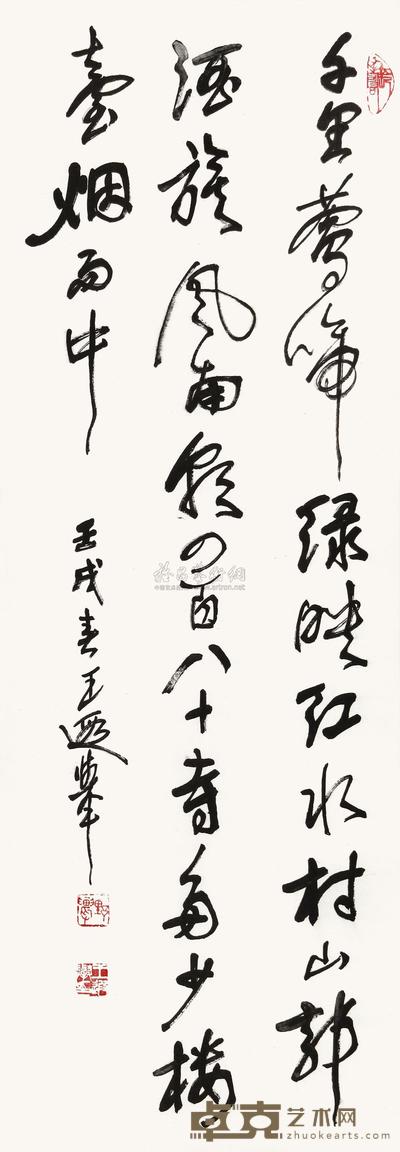 千里鶯啼绿映红水村山郭
酒旗风南朝四百八十寺多少楼
臺烟雨中
壬戌春王遐舉
雅昌藝術網
卓克艺术网
zhuokearts.com